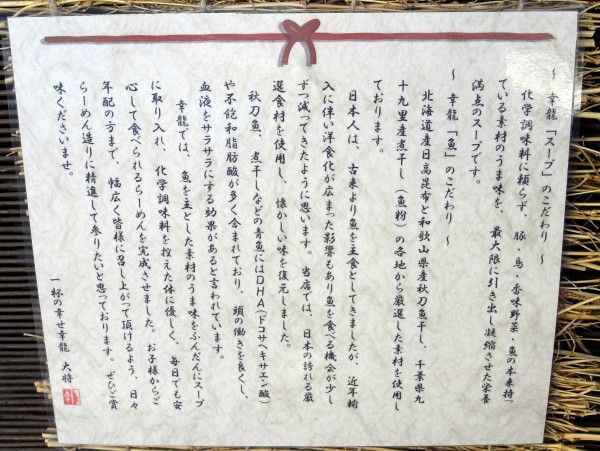 ～ 幸龍「スープ」のこだわり ～
化学調味料に頼らず、豚・鳥・香味野菜・魚の本来持っ
ている素材のうま味を、最大限に引き出し凝縮させた栄養
満点のスープです。
～ 幸龍「魚」のこだわり ～
北海道産日高昆布と和歌山県産秋刀魚干し、千葉県九
十九里産煮干し（魚粉）の各地から厳選した素材を使用し
ております。
日本人は、古来より魚を主食としてきましたが、近年輸
入に伴い洋食化が広まった影響もあり魚を食べる機会が少し
ずつ減ってきたように思います。当店では、日本の誇れる厳
選食材を使用し、懐かしい味を復元しました。
秋刀魚、煮干しなどの青魚にはＤＨＡ（ドコサヘキサエン酸）
や不飽和脂肪酸が多く含まれており、頭の働きを良くし、
血液をサラサラにする効果があると言われています。
幸龍では、魚を主とした素材のうま味をふんだんにスープ
に取り入れ、化学調味料を控えた体に優しく、毎日でも安
心して食べられるらーめんを完成させました。お子様からご
年配の方まで、幅広く皆様に召し上がって頂けるよう、日々
らーめん造りに精進して参りたいと思っております。ぜひご賞
味くださいませ。
一杯の幸せ幸龍 大将